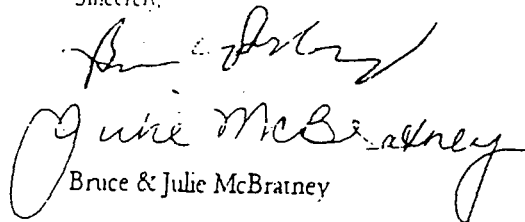 Sincerely,
Julie McBratney
Bruce & Julie McBratney